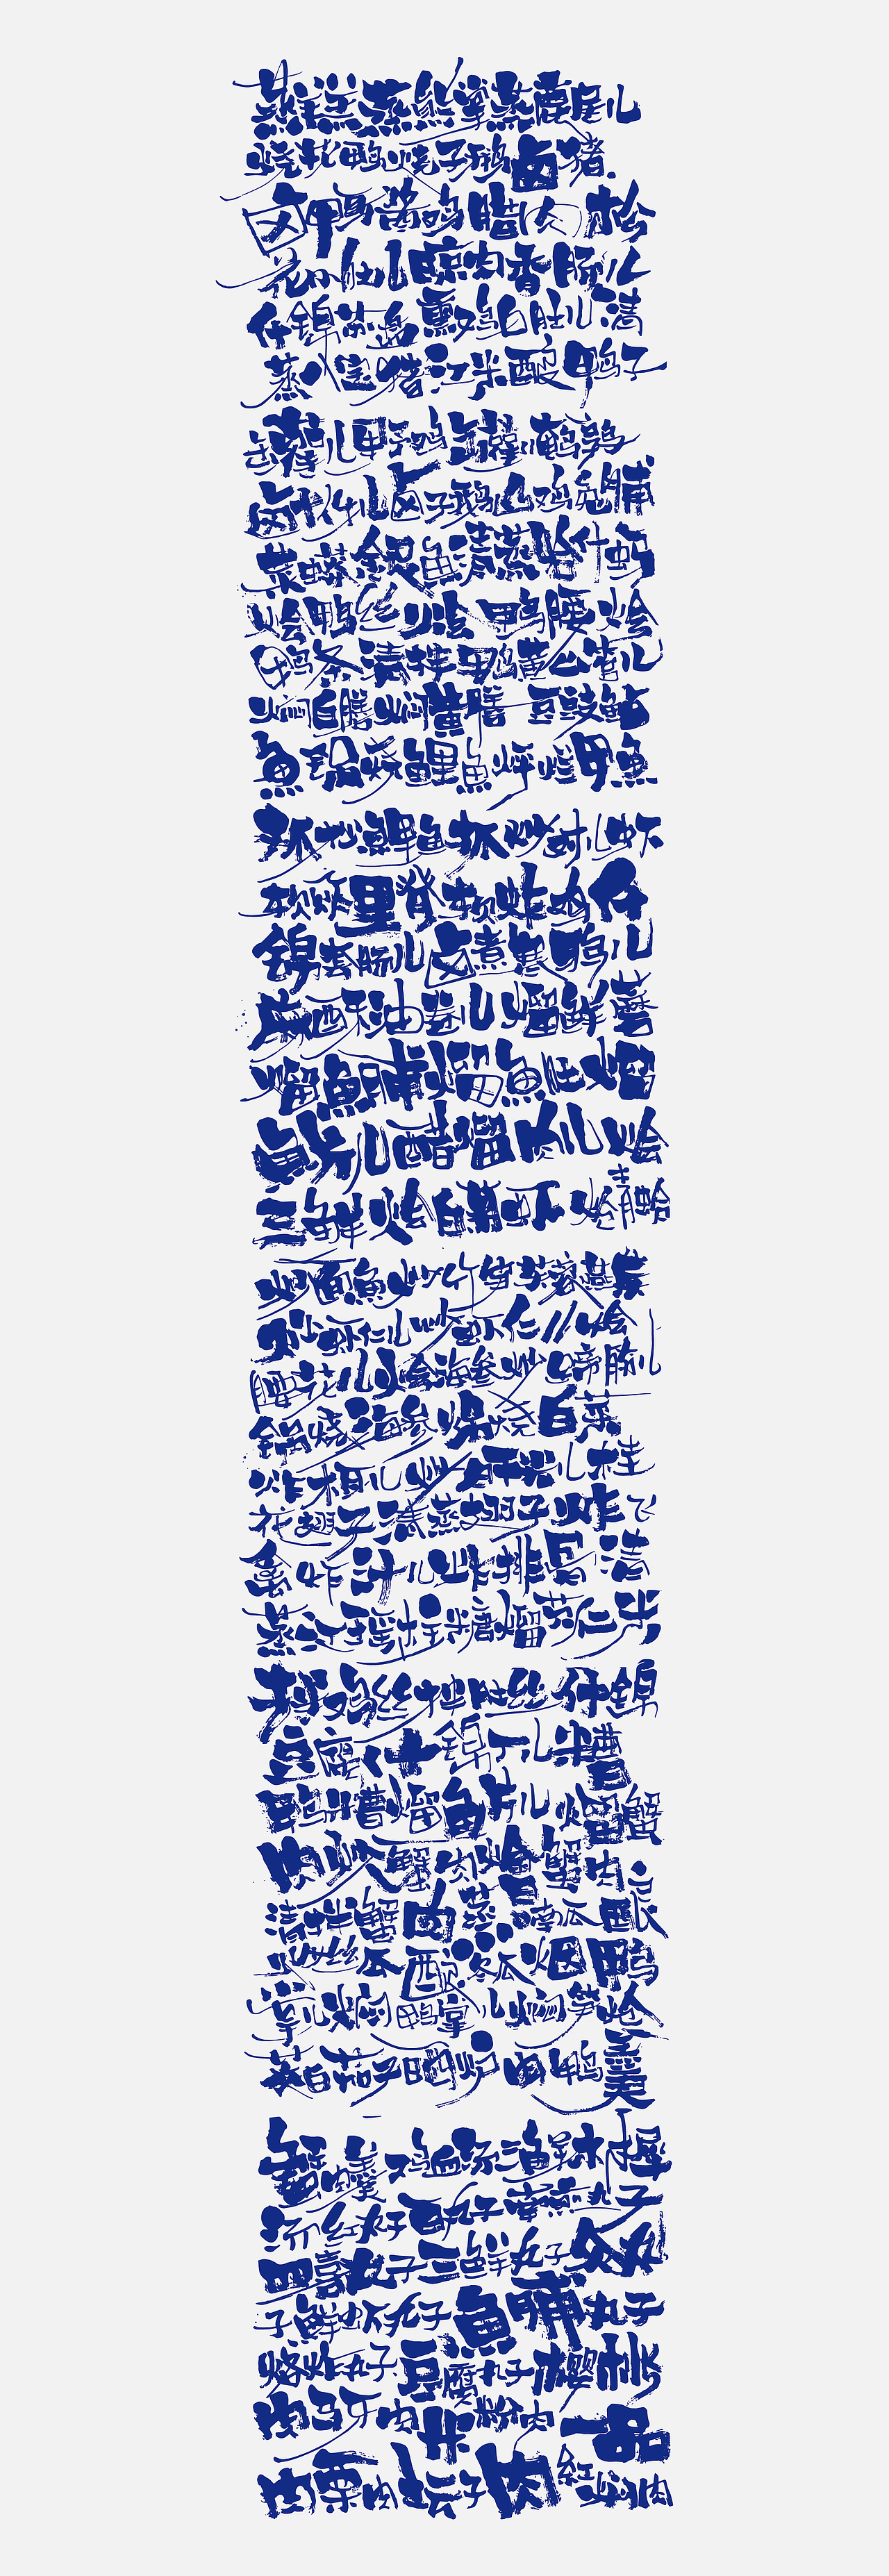 蒸羊羔蒸熊掌蒸鹿尾儿
烧花鸭烧子鹅卤猪
卤鸭酱鸡腊肉松
花小肚儿晾肉香肠儿
什锦苏盘熏鸡白肚儿清
蒸八宝猪江米酿鸭子
罐儿野鸡罐儿鹌鹑
卤什件儿卤子鹅山鸡兔脯
菜蟒銀魚清蒸哈什蚂
烩鸭丝烩鸭腰烩
鸭条清拌鸭丝黄心管儿
焖白鳝焖黄鳝豆豉鲇
魚锅烧鲤魚烀烂甲魚
抓炒鲤魚抓炒对儿虾
软炸里脊软炸鸡什
锦套肠儿卤煮寒鸦儿
麻酥油卷儿熘鲜蘑
熘魚脯熘魚肚熘
魚片儿醋熘肉片儿烩
三鲜烩白蘑烩鸽
炒面魚炒竹笋芙蓉燕菜
炒虾仁儿烩虾仁儿烩
腰花儿烩海参炒蹄筋儿
锅烧海参锅烧白菜
炸木耳儿炒肝尖儿桂
花翅子清蒸翅子炸飞
禽炸汁儿炸排骨清
蒸江瑶柱糖熘芡仁米
拌鸡丝拌肚丝什锦
豆腐什锦丁儿糟
鸭糟熘魚片儿熘蟹
肉炒蟹肉烩蟹肉
清拌蟹肉蒸南瓜酿
倭瓜炒丝瓜酿冬瓜烟鸭
掌儿焖鸭掌儿焖笋烩
茭白茄子晒炉肉鸭羹
蟹肉羹鸡血汤三鲜木樨
汤红丸子白丸子南煎丸子
四喜丸子三鲜丸子汆丸
子鲜虾丸子魚脯丸子
烙炸丸子豆腐丸子樱桃
肉马牙肉米粉肉一品
肉栗肉坛子肉红焖肉